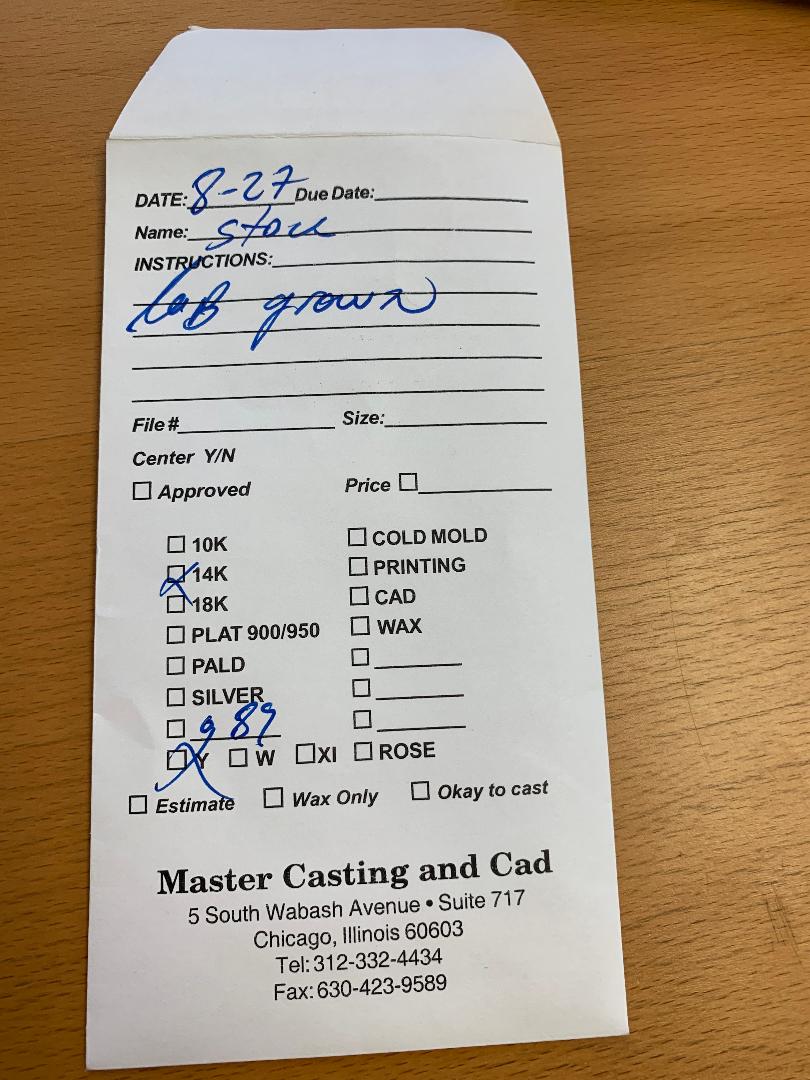 DATE: 8-27 Due Date:
Name: Stock
INSTRUCTIONS:
Lab grown
File # Size:
Center Y/N
Approved Price
10K COLD MOLD
14K PRINTING
18K CAD
PLAT 900/950 WAX
PALD
SILVER
989
Y W XI ROSE
Estimate Wax Only Okay to cast
Master Casting and Cad
5 South Wabash Avenue • Suite 717
Chicago, Illinois 60603
Tel: 312-332-4434
Fax: 630-423-9589